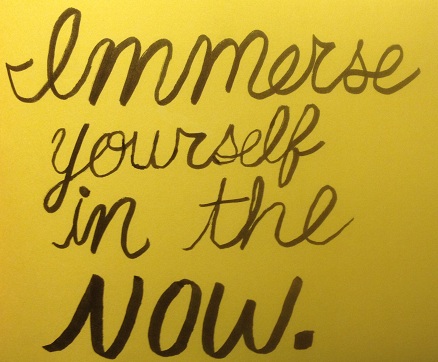 Immerse
yourself
in the
Now.